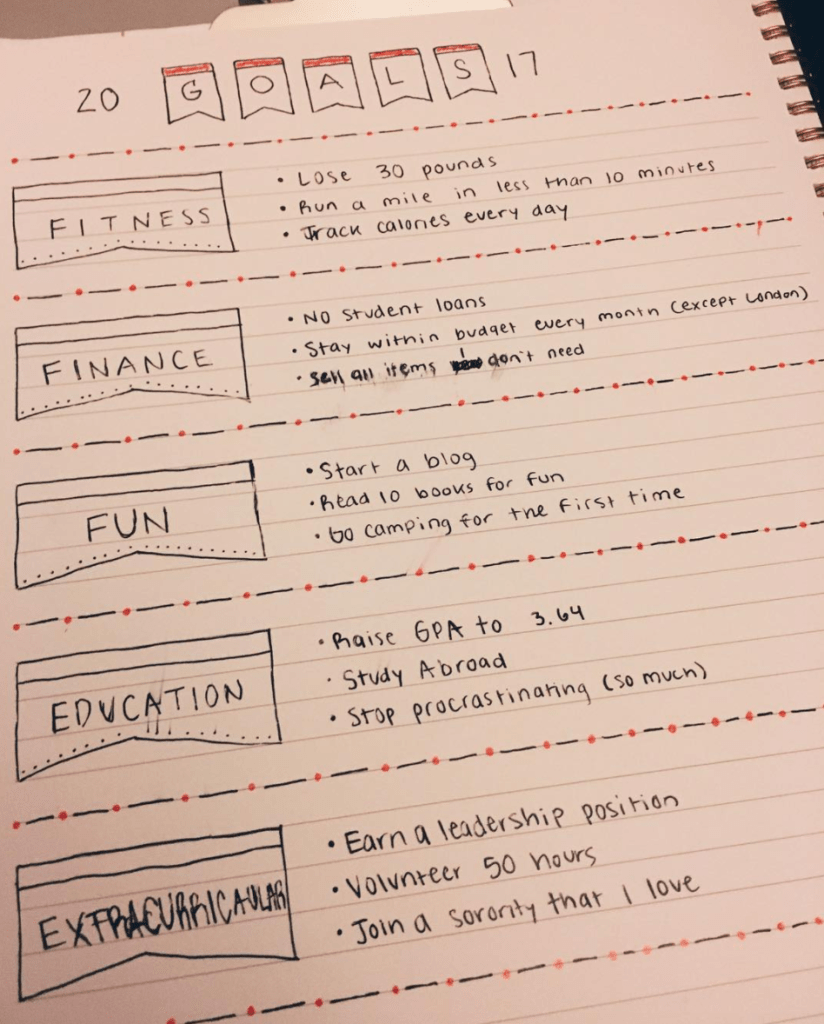 20 GOALS 17
FITNESS
• Lose 30 pounds
• Run a mile in less than 10 minutes
• Track calories every day
FINANCE
• No student loans
• Stay within budget every month (except London)
• Sell all items I don't need
FUN
• Start a blog
• Read 10 books for fun
• Go camping for the first time
EDUCATION
• Raise GPA to 3.64
• Study Abroad
• Stop procrastinating (so much)
EXTRACURRICAULAR
• Earn a leadership position
• Volunteer 50 hours
• Join a sorority that I love